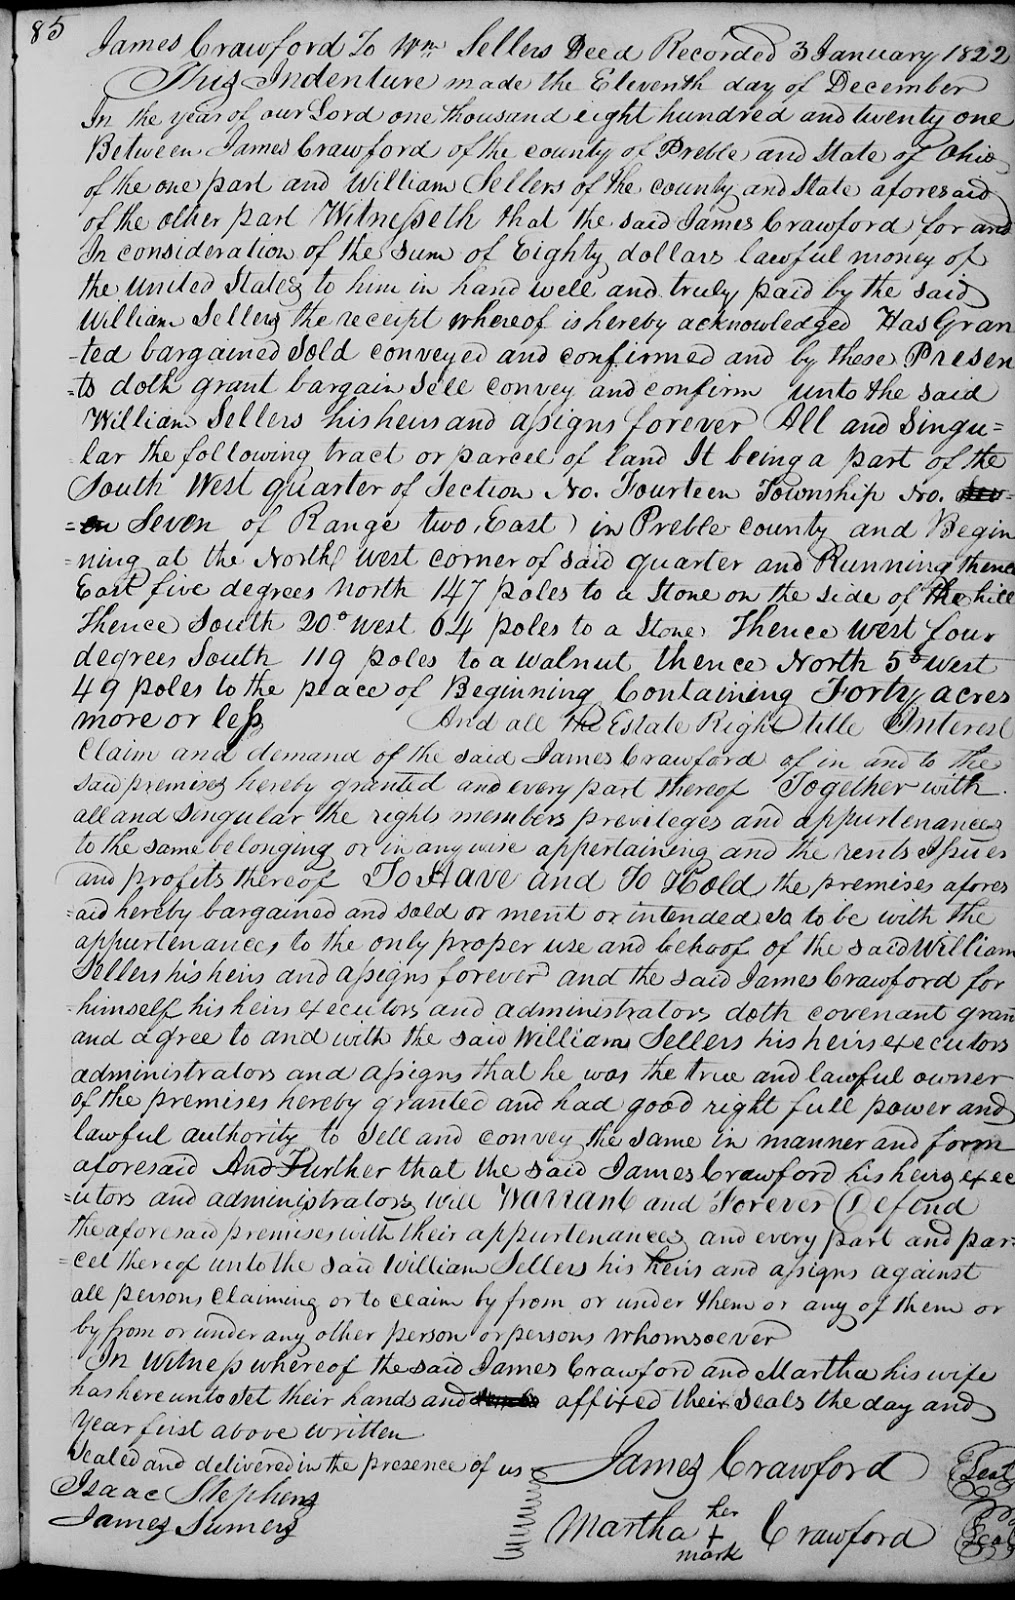 85
James Crawford To Wm Sellers Deed Recorded 3 January 1822
This Indenture made the Eleventh day of December
In the year of our Lord one thousand eight hundred and twenty one
Between James Crawford of the county of Preble and State of Ohio
of the one part and William Sellers of the county and State aforesaid
of the other part Witnesseth that the said James Crawford for and
In consideration of the sum of Eighty dollars lawful money of
the United States to him in hand well and truly paid by the said
William Sellers the receipt whereof is hereby acknowledged Has Gran
-ted bargained Sold conveyed and confirmed and by these Presen
=ts doth grant bargain sell convey and confirm unto the said
William Sellers his heirs and assigns forever All and Singu=
lar the following tract or parcel of land It being a part of the
South West quarter of Section No. Fourteen Township No. Sev=
=en Seven of Range two East in Preble county and Begin
=ning at the North West corner of said quarter and Running thence
East five degrees north 147 poles to a Stone on the side of the hill
Thence South 20° West 64 poles to a Stone Thence West four
degrees South 119 poles to a walnut thence North 5° West
49 poles to the place of Beginning Containing Forty acres
more or less And all the Estate Right title Interest
Claim and demand of the said James Crawford of in and to the
said premises hereby granted and every part thereof Together with
all and Singular the rights members previleges and appurtenances
to the same belonging or in any wise appertaining and the rents Issues
and profits thereof To Have and To Hold the premises afores
=aid hereby bargained and sold or ment or intended so to be with the
appurtenances to the only proper use and behoof of the said William
Sellers his heirs and assigns forever and the said James Crawford for
=himself his heirs executors and administrators doth covenant grant
and agree to and with the said William Sellers his heirs executors
administrators and assigns that he was the true and lawful owner
of the premises hereby granted and had good right full power and
lawful authority to Sell and convey the same in manner and form
aforesaid And Further that the said James Crawford his heirs exec
=utors and administrators will Warrant and Forever Defend
the aforesaid premises with their appurtenances and every part and par=
=cel thereof unto the said William Sellers his heirs and assigns against
all persons Claiming or to claim by from or under them or any of them or
by from or under any other person or persons whomsoever
In Witness whereof the said James Crawford and Martha his wife
has hereunto set their hands and affixed their Seals the day and
Year first above written
Sealed and delivered in the presence of us James Crawford Seal
Isaac Stephens
James Sumers Martha her + mark Crawford Seal